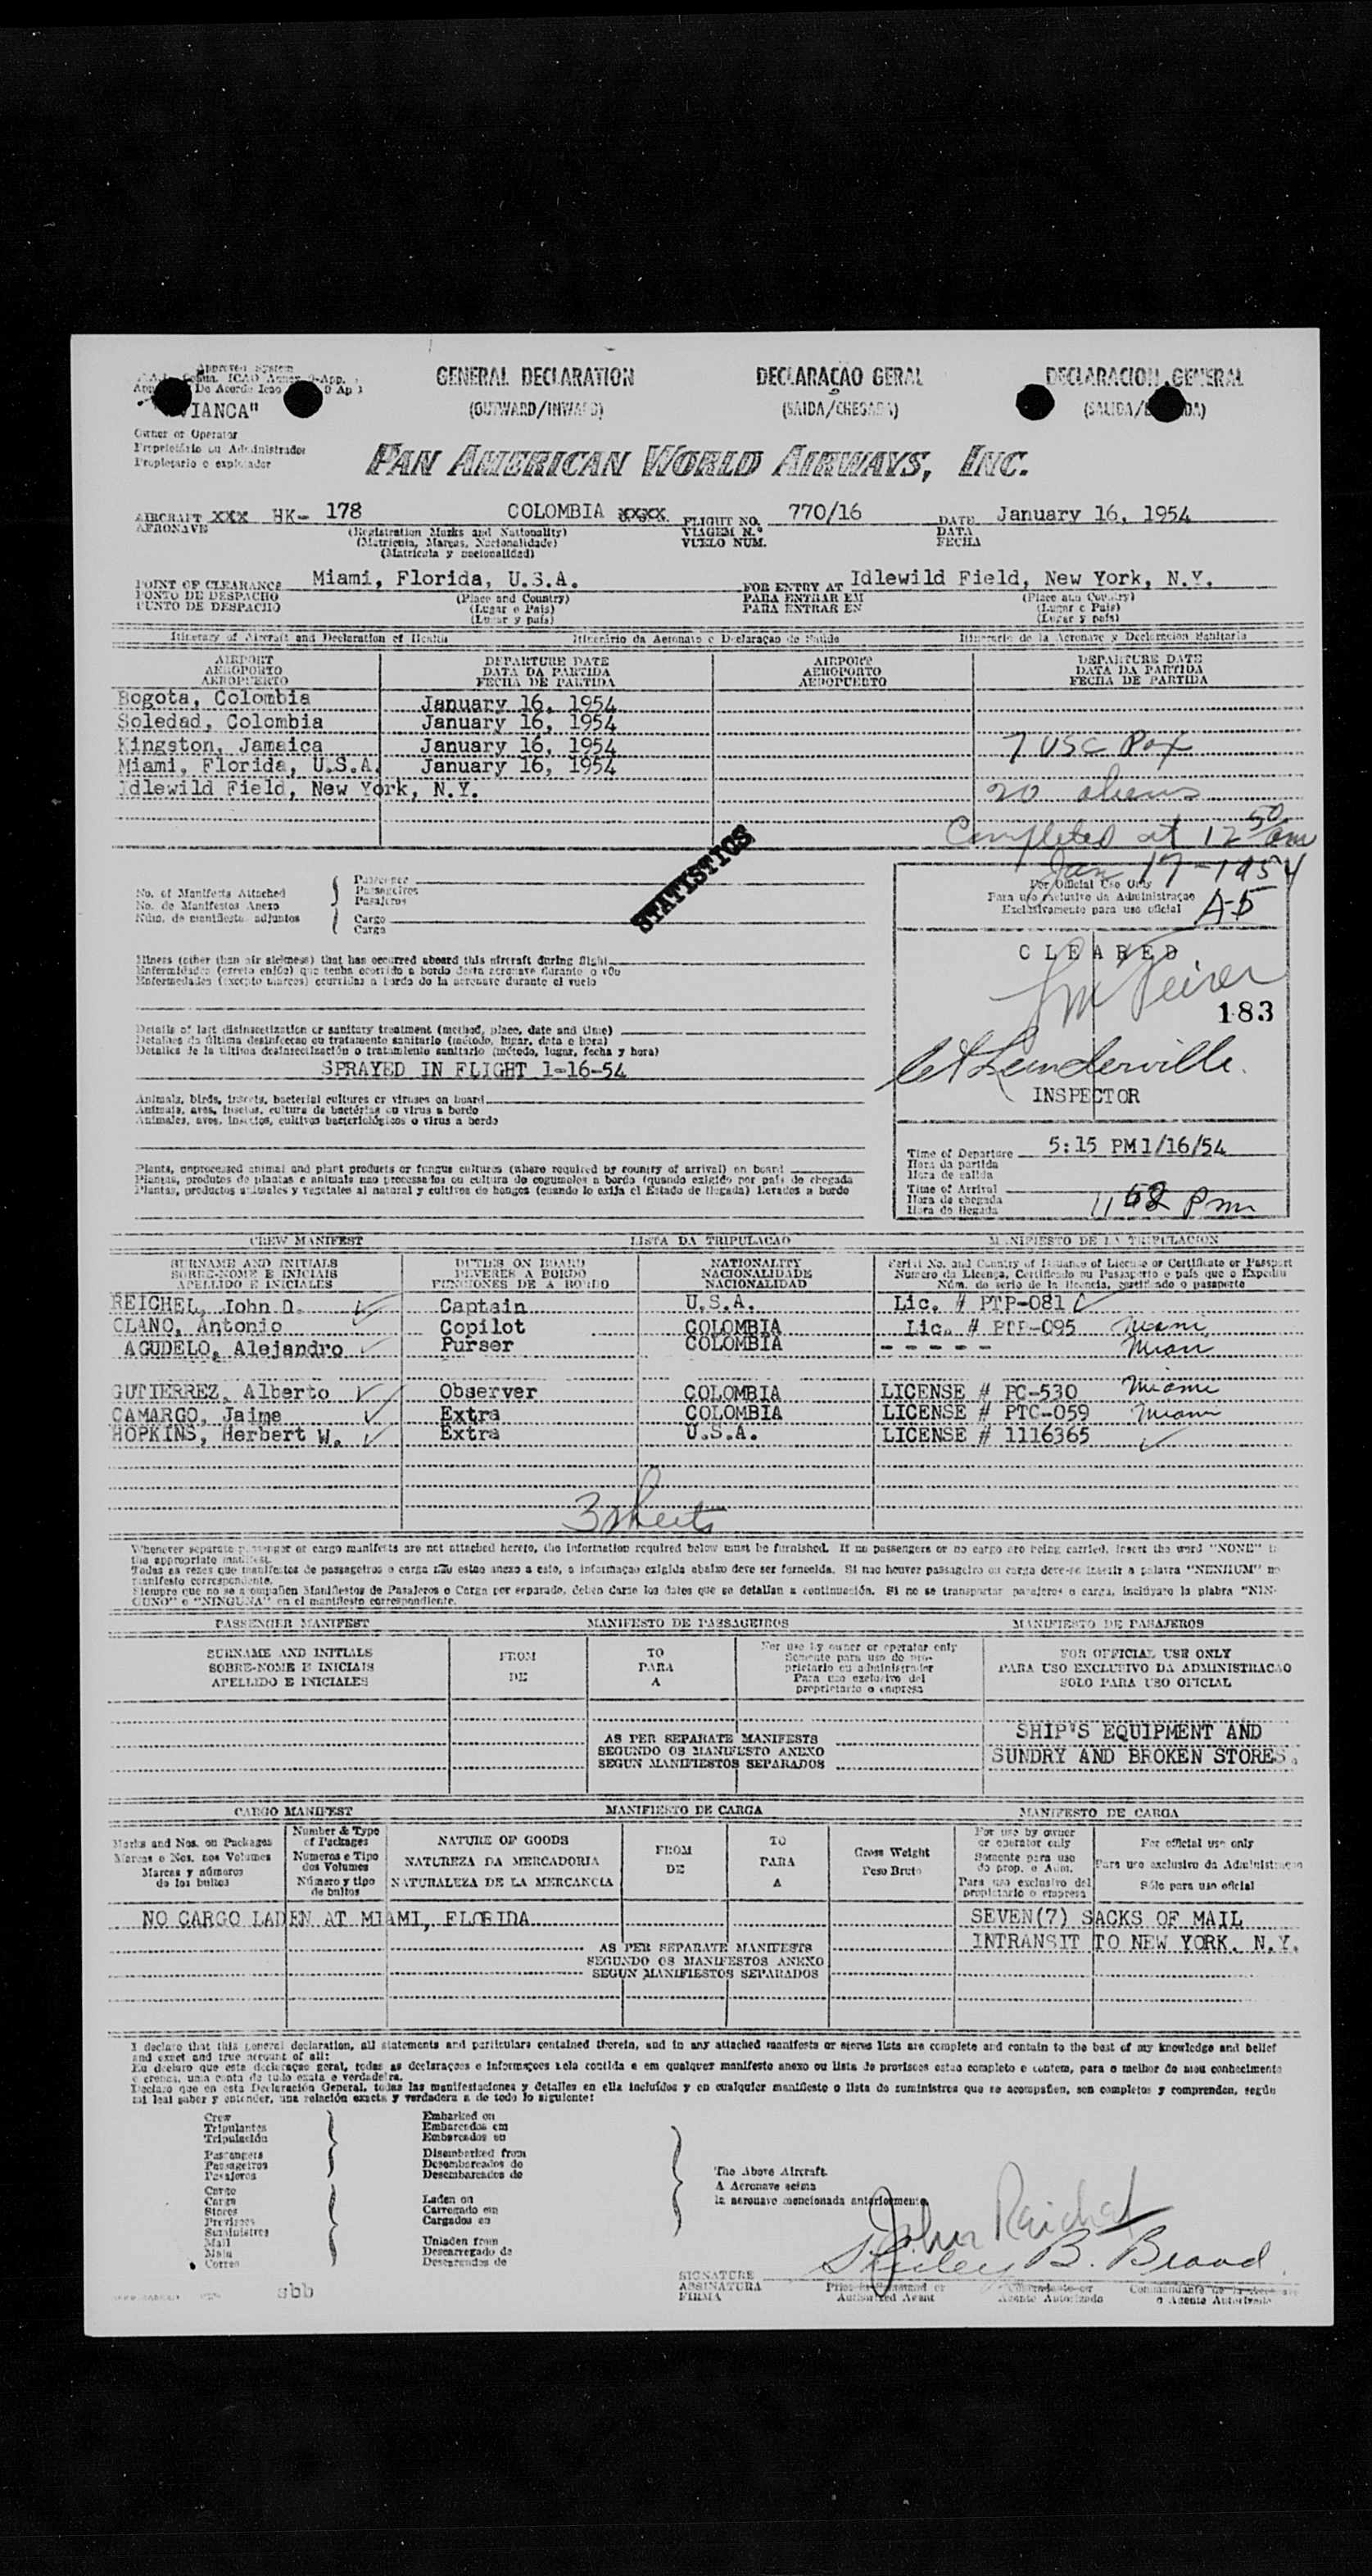 Approved System
GENERAL DECLARATION DECLARAÇAO GERAL DECLARACION GENERAL
(OUTWARD/INWARD) (SAIDA/CHEGADA)
VIANCA"
Owner or Operator
Proprietário ou Administrador
Propietario o explotador
PAN AMERICAN WORLD AIRWAYS, INC.
AIRCRAFT xxx HK- 178 COLOMBIA xxxx FLIGHT NO. 770/16 DATE January 16, 1954
AERONAVE (Registration Marks and Nationality) VIAGEM N.º DATA
(Matricula, Marcas, Nacionalidade) VUELO NUM. FECHA
(Matricula y nacionalidad)
POINT OF CLEARANCE Miami, Florida, U.S.A. FOR ENTRY AT Idlewild Field, New York, N.Y.
PONTO DE DESPACHO (Place and Country) PARA ENTRAR EM (Place and Country)
PUNTO DE DESPACHO (Lugar e Pais) PARA ENTRAR EN (Lugar e Pais)
(Lugar y pais) (Lugar y pais)
Itinerary of Aircraft and Declaration of Health Itinerário da Aeronave e Declaraçao de Saúde Itinerario de la Aeronave y Declaracion Sanitaria
AIRPORT DEPARTURE DATE AIRPORT DEPARTURE DATE
AEROPORTO DATA DA PARTIDA AEROPORTO DATA DA PARTIDA
AEROPUERTO FECHA DE PARTIDA AEROPUERTO FECHA DE PARTIDA
Bogota, Colombia January 16, 1954
Soledad, Colombia January 16, 1954
Kingston, Jamaica January 16, 1954 7 USC Pax
Miami, Florida, U.S.A. January 16, 1954
Idlewild Field, New York, N.Y. 20 aliens
Completed at 12 50 am
Jan 17-1954
STATISTICS
No. of Manifests Attached
No. de Manifestos Anexo
Núm. de manifiestos adjuntos
Passageiros
Pasajeros
Cargo
Carga
For Official Use Only
Para uso exclusivo da Administraçao
Exclusivamente para uso oficial A-5
CLEARED
183
INSPECTOR
Illness (other than air sickness) that has occurred aboard this aircraft during flight
Enfermedades (excepto mareos) ocurridas a bordo de la aeronave durante el vuelo
Details of last disinsectization or sanitary treatment (method, place, date and time)
Detalhes da última desinfeccao ou tratamento sanitario (método, lugar, data e hora)
Detalles de la última desinsectización o tratamiento sanitario (método, lugar, fecha y hora)
SPRAYED IN FLIGHT 1-16-54
Animals, birds, insects, bacterial cultures or viruses on board
Animais, aves, insetos, cultura de bactérias ou virus a bordo
Animales, aves, insectos, cultivos bacteriológicos o virus a bordo
Plants, unprocessed animal and plant products or fungus cultures (where required by country of arrival) on board
Plantas, produtos de plantas e animais nao processados ou cultura de cogumelos a bordo (quando exigido por pais de chegada
Plantas, productos animales y vegetales al natural y cultivos de hongos (cuando lo exija el Estado de llegada) llevados a bordo
Time of Departure 5:15 PM 1/16/54
Hora da partida
Hora de salida
Time of Arrival
Hora de chegada
Hora de llegada
CREW MANIFEST LISTA DA TRIPULACAO MANIFIESTO DE LA TRIPULACION
SURNAME AND INITIALS DUTIES ON BOARD NATIONALITY Serial No. and Country of Issuance of License or Certificate or Passport
SOBRE-NOME E INICIAIS DEVERES A BORDO NACIONALIDADE Numero da Licença, Certificado ou Passaporto e pais que o Expediu
APELLIDO E INICIALES FUNCIONES DE A BORDO NACIONALIDAD Núm. de serie de la licencia, certificado o pasaporte
REICHEL, John D. Captain U.S.A. Lic. # PTP-081
OLANO, Antonio Copilot COLOMBIA Lic. # PTP-095 Miami
AGUDELO, Alejandro Purser COLOMBIA - - - - - Miami
GUTIERREZ, Alberto Observer COLOMBIA LICENSE # PC-530 Miami
CAMARGO, Jaime Extra COLOMBIA LICENSE # PTC-059 Miami
HOPKINS, Herbert W. Extra U.S.A. LICENSE # 1116365
3 sheets
Whenever separate passenger or cargo manifests are not attached hereto, the information required below must be furnished. If no passengers or no cargo are being carried, insert the word "NONE" in
the appropriate manifest.
Todas as vezes que manifestos de passageiros e carga não estao anexo a esto, a informaçao exigida abaixo deve ser fornecida. Si nao houver passageiro ou carga deve-se inserir a palavra "NENHUM" no
manifesto correspondente.
Siempre que no se acompañen Manifiestos de Pasajeros o Carga por separado, deben darse los datos que se detallan a continuación. Si no se transportar pasajeros o carga, inclúyase la plabra "NIN-
GUNO" o "NINGUNA" en el manifiesto correspondiente.
PASSENGER MANIFEST MANIFESTO DE PASSAGEIROS MANIFIESTO DE PASAJEROS
SURNAME AND INITIALS FROM TO For use by owner or operator only FOR OFFICIAL USE ONLY
SOBRE-NOME E INICIAIS DE PARA Somente para uso do pro- PARA USO EXCLUSIVO DA ADMINISTRACAO
APELLIDO E INICIALES A prietario ou administrador SOLO PARA USO OFICIAL
Para uso exclusivo del
propietario o empresa
AS PER SEPARATE MANIFESTS SHIP'S EQUIPMENT AND
SEGUNDO OS MANIFESTO ANEXO SUNDRY AND BROKEN STORES.
SEGUN MANIFIESTOS SEPARADOS
CARGO MANIFEST MANIFIESTO DE CARGA MANIFESTO DE CARGA
Marks and Nos. on Packages Number & Type of Packages NATURE OF GOODS FROM TO Gross Weight For use by owner or operator only For official use only
Marcas e Nos. nos Volumes Numeros e Tipo dos Volumes NATUREZA DA MERCADORIA DE PARA Peso Bruto Somente para uso do prop. e Adm. Para uso exclusivo da Administraçao
Marcas y números de los bultos Número y tipo de bultos NATURALEZA DE LA MERCANCIA A Para uso exclusivo del propietario o empresa Sólo para uso oficial
NO CARGO LADEN AT MIAMI, FLORIDA SEVEN(7) SACKS OF MAIL
AS PER SEPARATE MANIFESTS INTRANSIT TO NEW YORK. N.Y.
SEGUNDO OS MANIFESTOS ANEXO
SEGUN MANIFIESTOS SEPARADOS
I declare that this general declaration, all statements and particulars contained therein, and in any attached manifests or stores lists are complete and contain to the best of my knowledge and belief
and exact and true account of all:
Eu declaro que esta declaraçao geral, todas as declaraçoes e informaçoes nela contida e em qualquer manifesto anexo ou lista de provisoes estao completo e contem, para o melhor do meu conhecimento
e crenca, uma conta de tudo exata e verdadeira.
Declaro que en esta Declaración General, todas las manifestaciones y detalles en ella incluídos y en cualquier manifiesto o lista de suministros que se acompañen, son completos y comprenden, según
mi leal saber y entender, una relación exacta y verdadera a de todo lo siguiente:
Crew Embarked on
Tripulantes Embarcados em
Tripulación Embarcados en
Passengers Disembarked from
Passageiros Desembarcados do
Pasajeros Desembarcados de
Cargo
Carga Laden on
Stores Carregado em
Cargados en
Suministros
Mail Unladen from
Mala Descarregado do
Correo Descargados de
The Above Aircraft.
A Aeronave acima
la aeronave mencionada anteriormente
John Reichel
Shirley B. Braod
SIGNATURE
ASSINATURA
FIRMA
Authorized Agent Agente Autorizado o Agente Autorizado
sbb